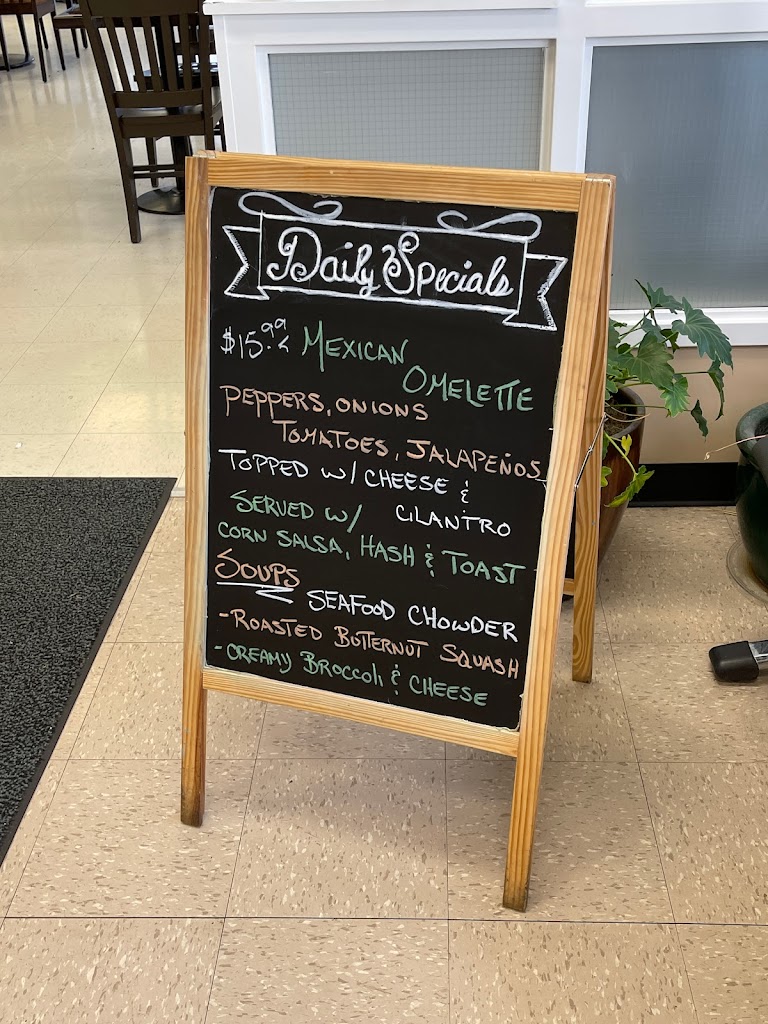 Daily Specials
$15.99 MEXICAN
OMELETTE
PEPPERS, ONIONS
TOMATOES, JALAPEÑOS
TOPPED W/ CHEESE &
CILANTRO
SERVED W/
CORN SALSA, HASH & TOAST
SOUPS
SEAFOOD CHOWDER
-ROASTED BUTTERNUT SQUASH
-CREAMY BROCCOLI & CHEESE